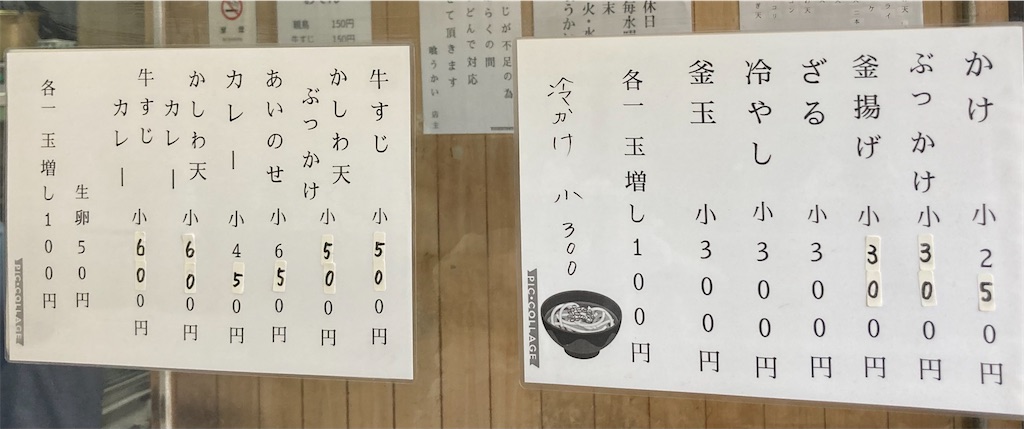 かけ 小250円
ぶっかけ 小300円
釜揚げ 小300円
ざる 小300円
冷やし 小300円
釜玉 小300円
各一 玉増し100円
冷かけ 小 300
PIC・COLLAGE
牛すじ 小500円
かしわ天
ぶっかけ 小500円
あいのせ 小650円
カレー 小450円
かしわ天
カレー 小600円
牛すじ
カレー 小600円
生卵50円
各一 玉増し100円
PIC・COLLAGE
じが不足の為
らくの間
どんで対応
て頂きます
喰うかい 店主
休日
毎水曜
末
火・水
150円
牛すじ 150円